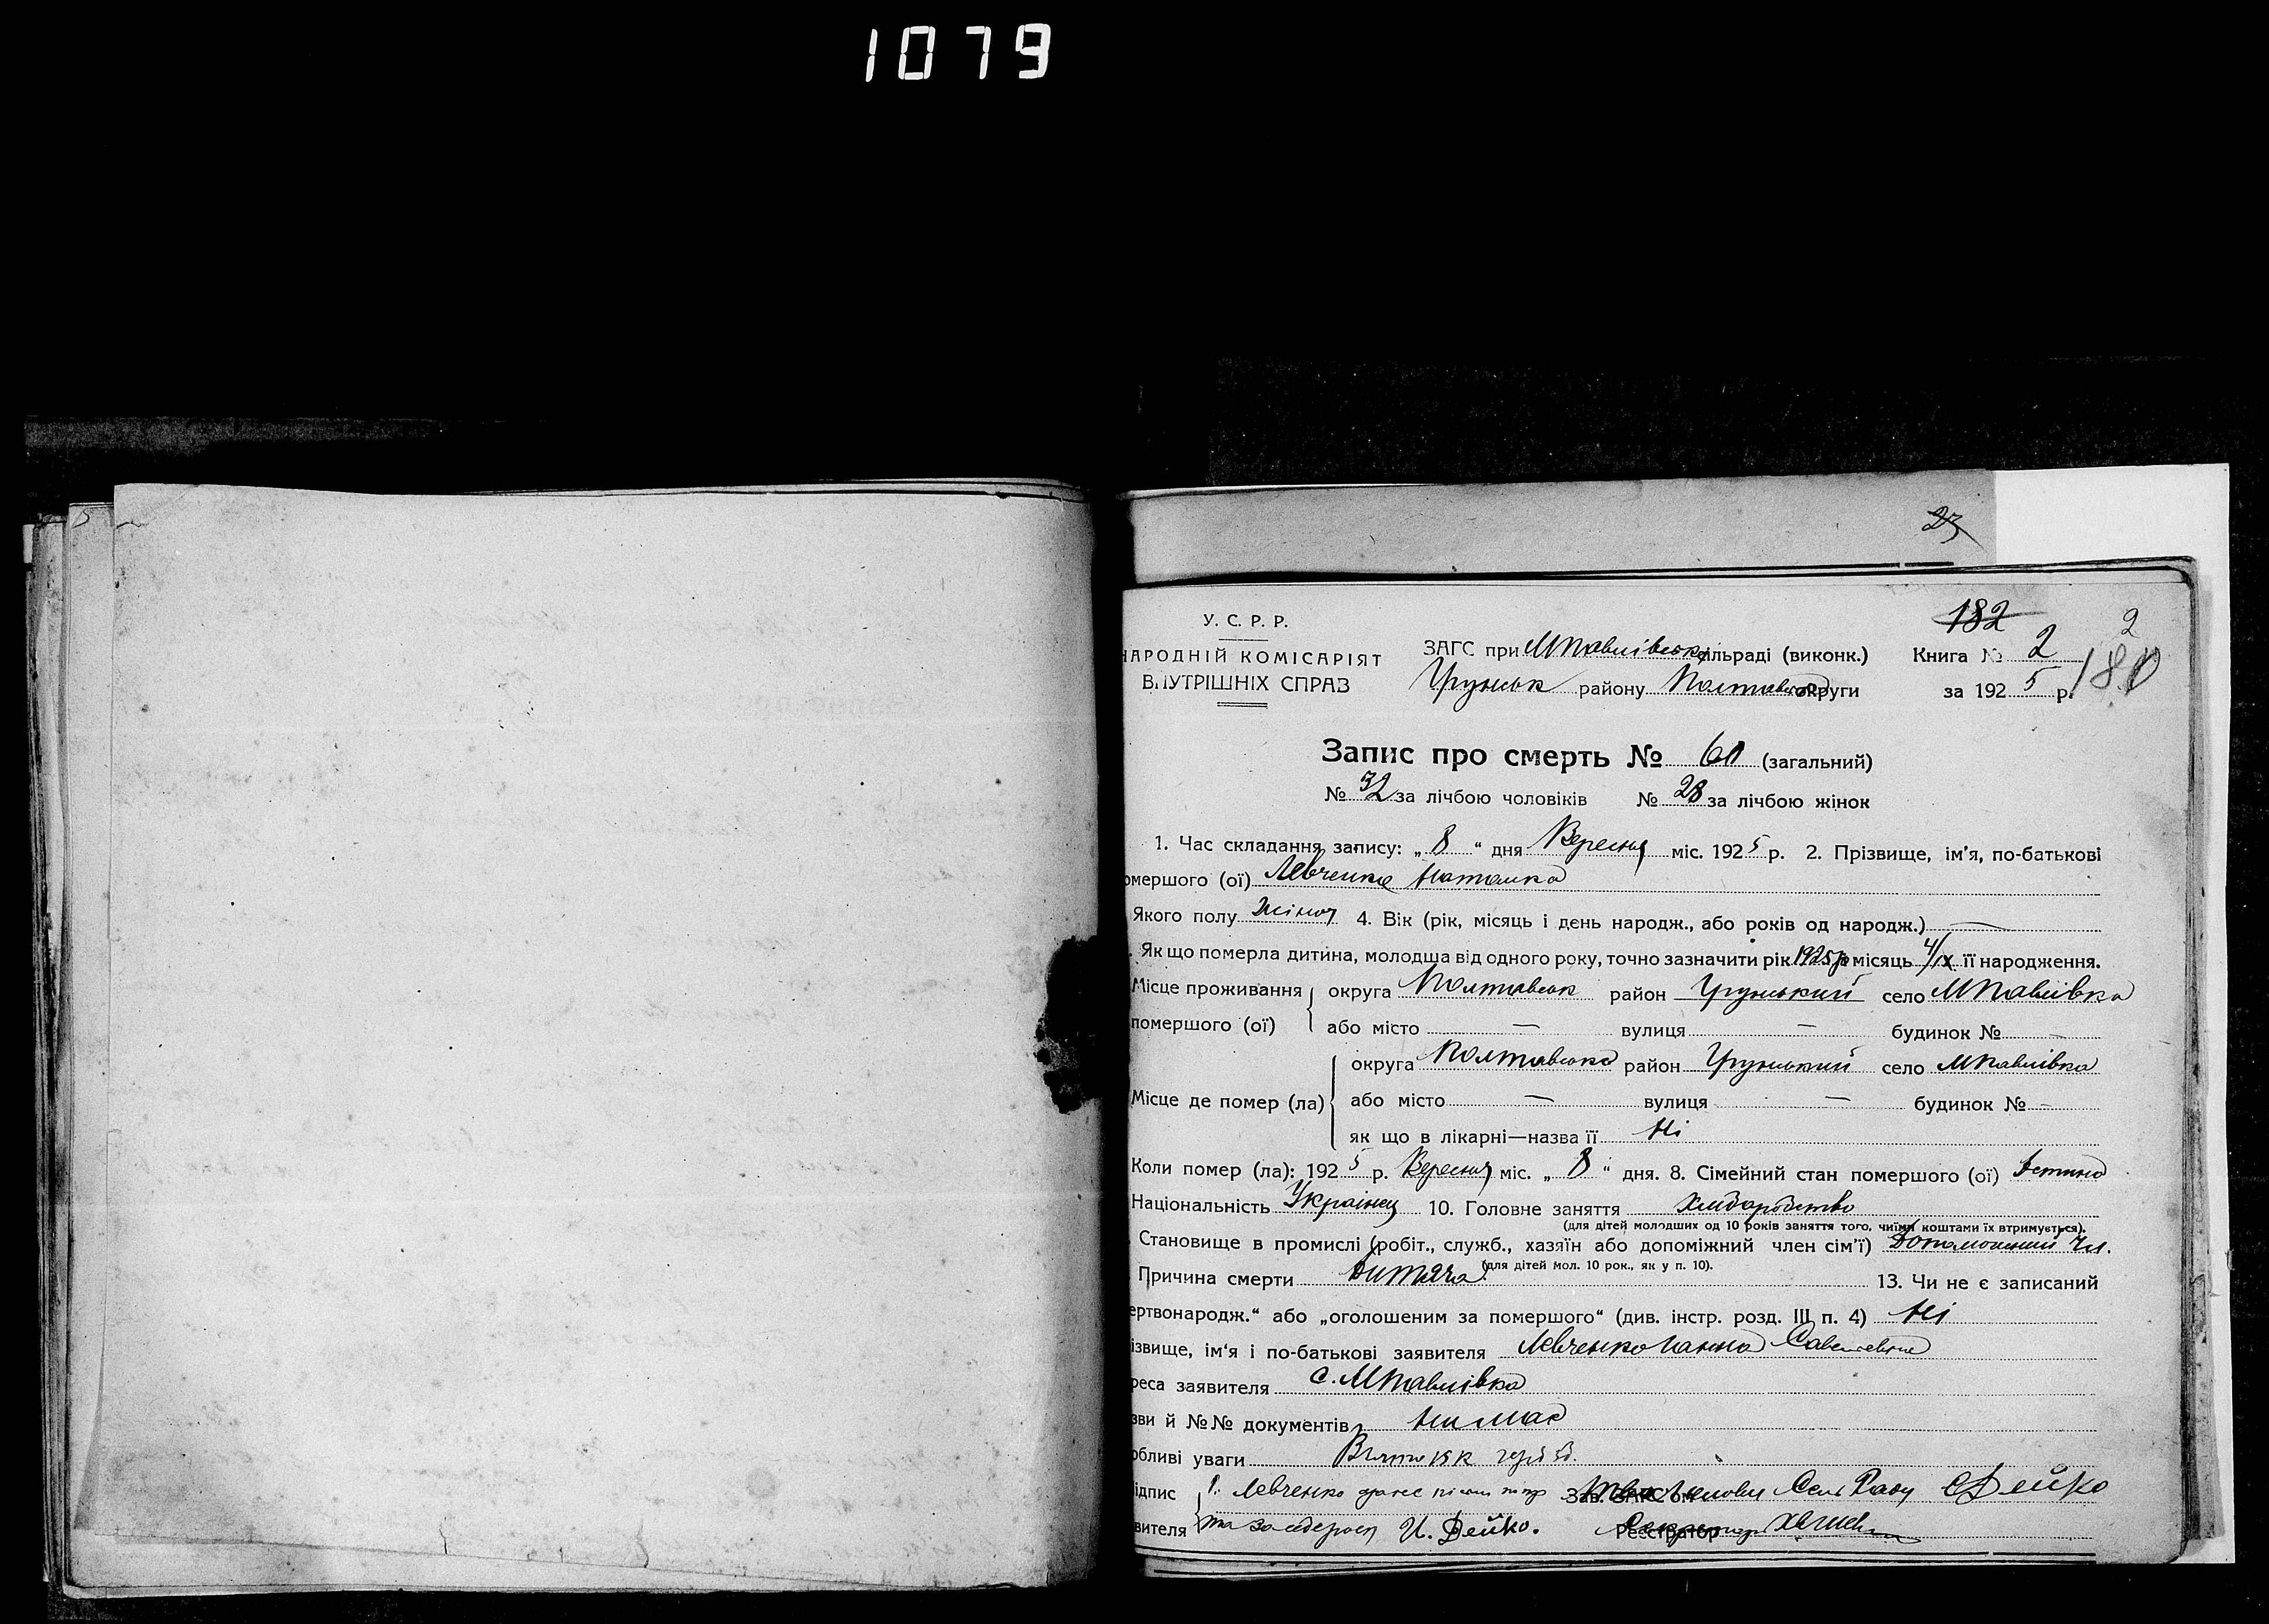 1079
23
182
2
У. С. Р. Р.
НАРОДНІЙ КОМІСАРІЯТ
ВНУТРІШНІХ СПРАВ
ЗАГС при МПавлівськ сільраді (виконк.) Книга № 2
180
Грунськ району Полтавськ округи за 1925 р.
Запис про смерть № 60 (загальний)
№ 32 за лічбою чоловіків № 28 за лічбою жінок
1. Час складання запису: „8“ дня Вересня міс. 1925 р. 2. Прізвище, ім'я, по-батькові
омершого (ої) Левченко Наталка
Якого полу Жіноч 4. Вік (рік, місяць і день народж., або років од народж.) —
. Як що померла дитина, молодша від одного року, точно зазначити рік 1925р місяць 4/ІХ її народження.
Місце проживання округа Полтавськ район Грунський село МПавлівка
помершого (ої) або місто — вулиця — будинок № —
округа Полтавська район Грунський село МПавлівка
Місце де помер (ла) або місто — вулиця — будинок № —
як що в лікарні—назва її Ні
Коли помер (ла): 1925 р. Вересня міс. „8“ дня. 8. Сімейний стан помершого (ої)
Національність Українец 10. Головне заняття Хліборобство
(для дітей молодших од 10 років заняття того, чиїми коштами їх втримується).
Становище в промислі (робіт., служб., хазяїн або допоміжний член сім'ї) Допоможний чл.
(для дітей мол. 10 рок., як у п. 10).
Причина смерти Дитяча 13. Чи не є записаний
ертвонародж.“ або „оголошеним за помершого“ (див. інстр. розд. III п. 4) Ні
ізвище, ім'я і по-батькові заявителя Левченко Ганна
реса заявителя с. МПавлівка
зви й №№ документів Нимає
обливі уваги
ідпис Левченко Зав. ЗАГС'ом Голова Сель Ради Дейко
вителя та за себе И. Дейко. Реєстратор